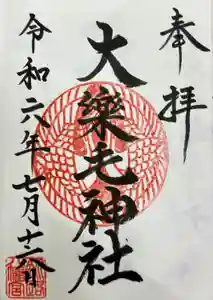 奉拝
大樂毛神社
令和六年七月十六日